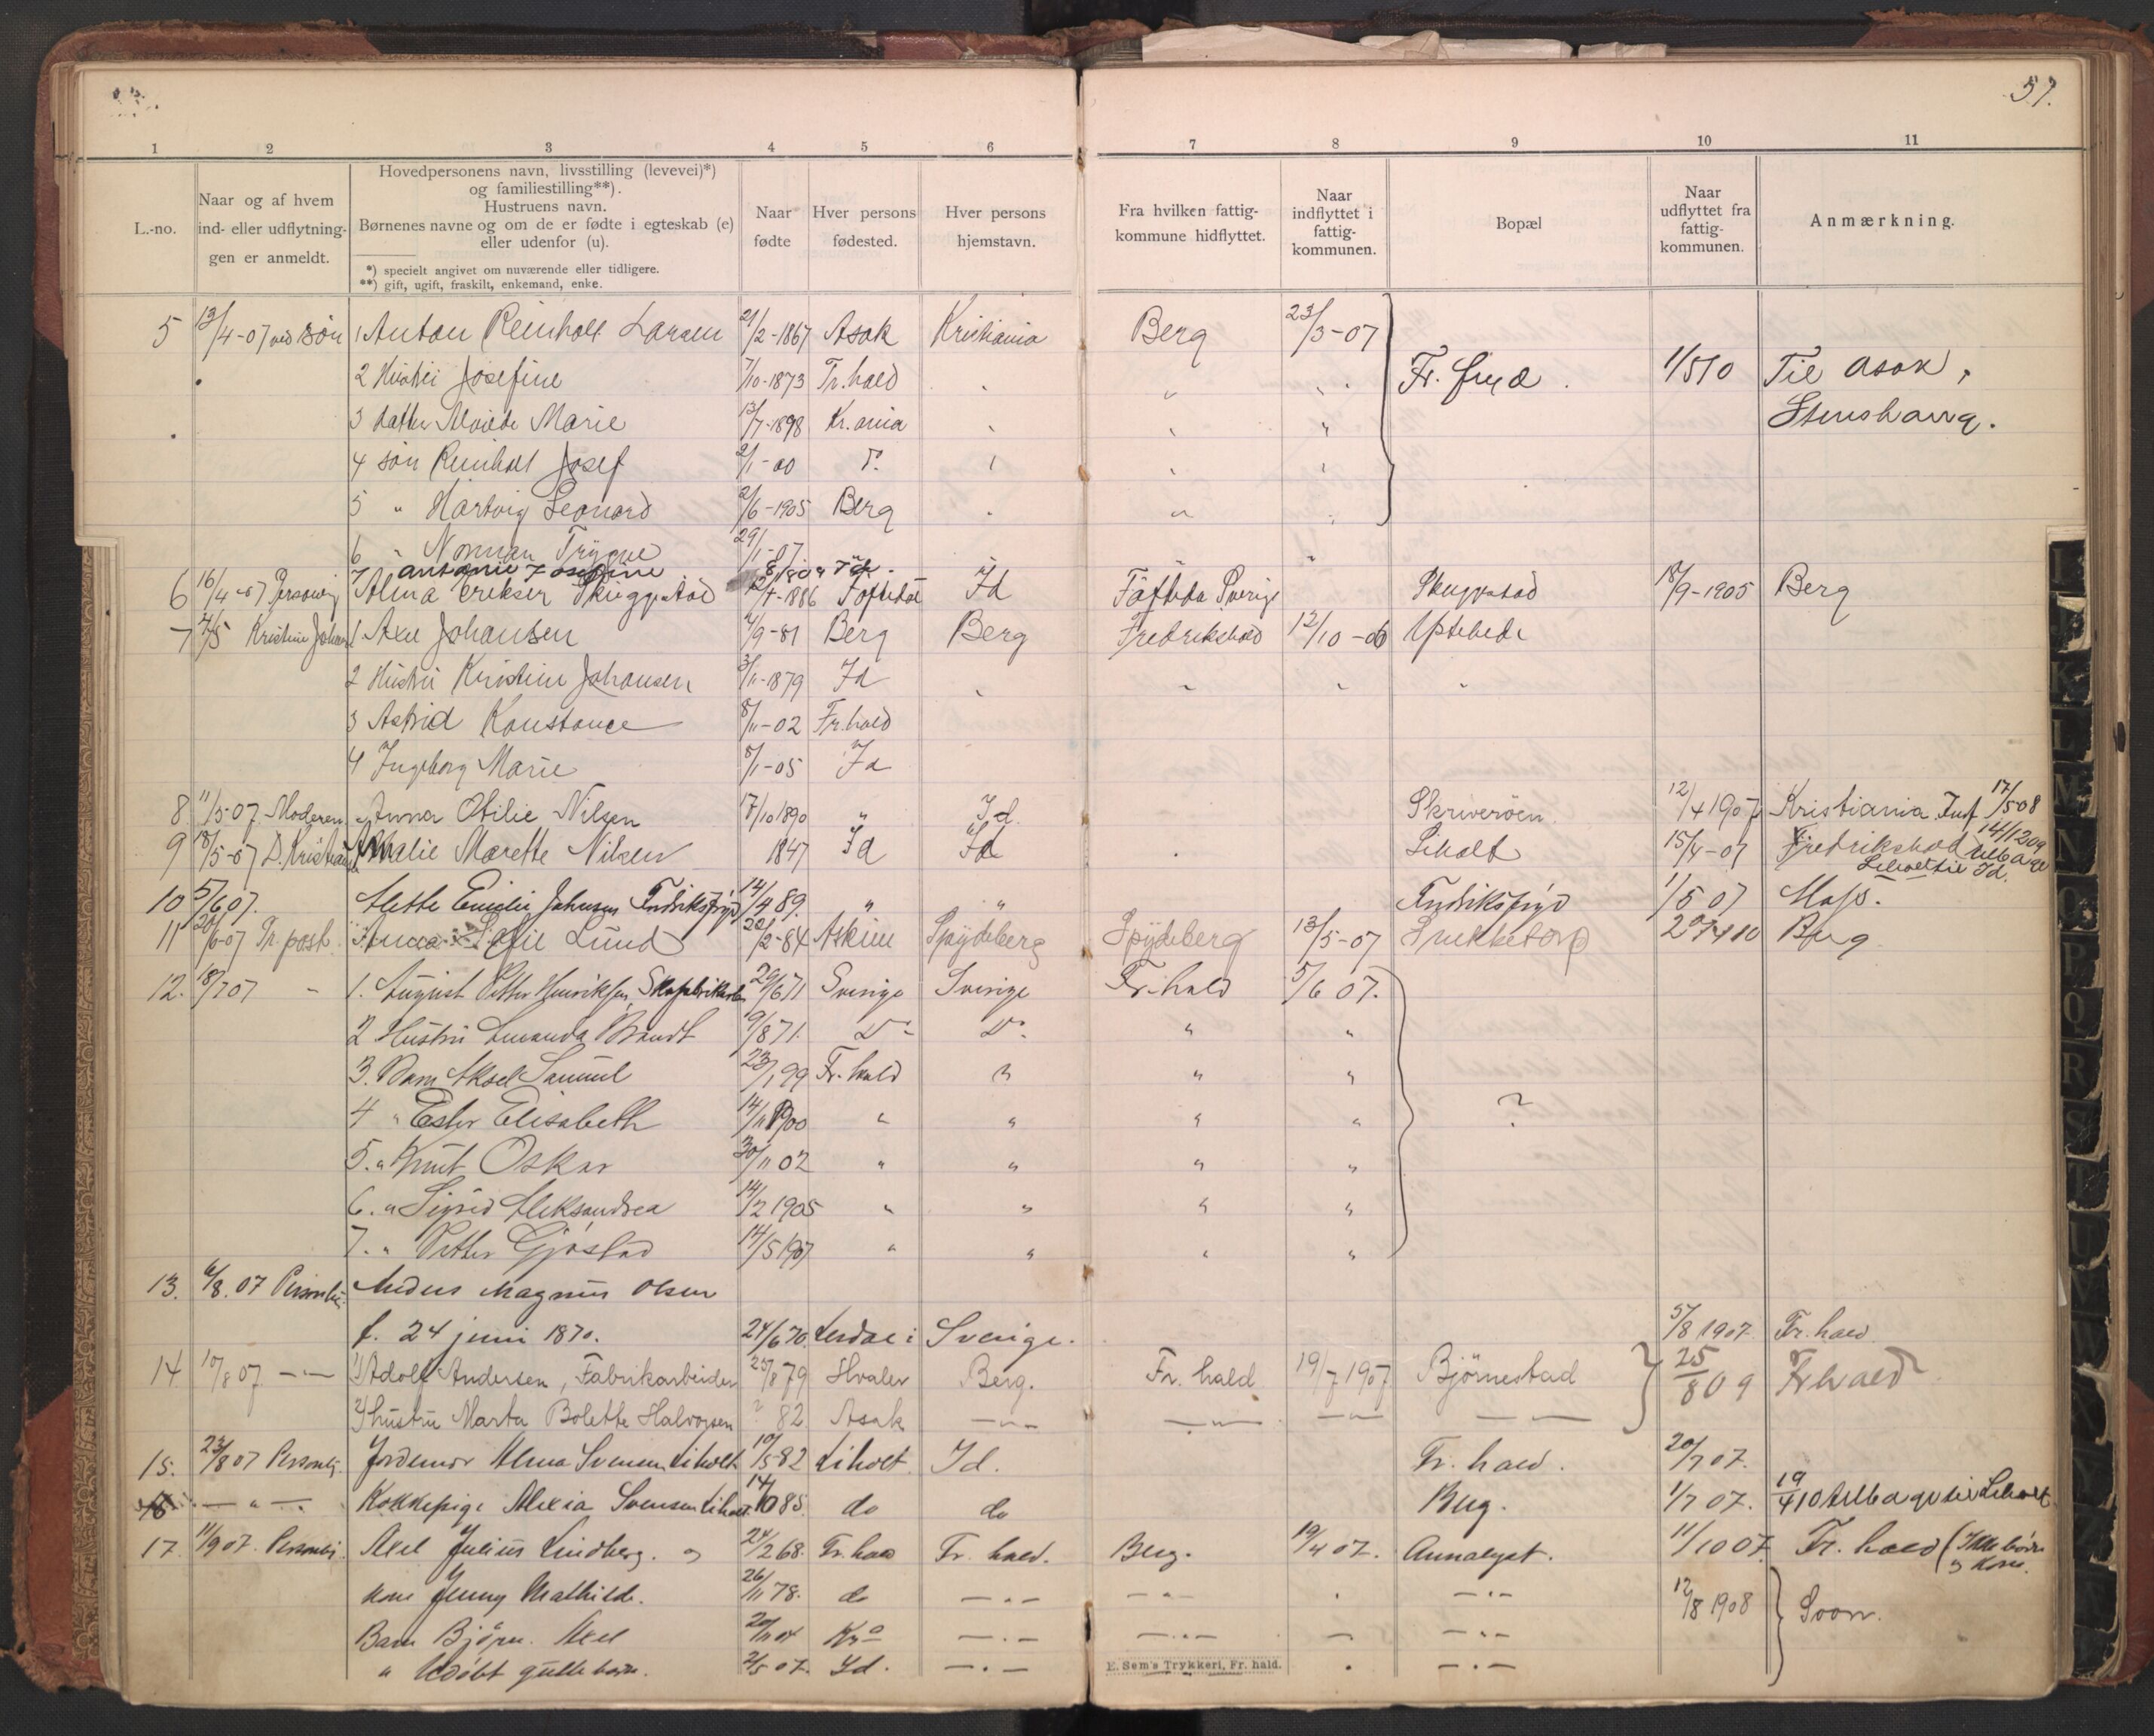 57.
1 2 3 4 5 6 7 8 9 10 11
L.-no.
Naar og af hvem
ind- eller udflytnin-
gen er anmeldt.
Hovedpersonens navn, livsstilling (levevei)*)
og familiestilling**).
Hustruens navn.
Børnenes navne og om de er fødte i egteskab (e)
eller udenfor (u).
*) specielt angivet om nuværende eller tidligere.
**) gift, ugift, fraskilt, enkemand, enke.
Naar
fødte
Hver persons
fødested.
Hver persons
hjemstavn.
Fra hvilken fattig-
kommune hidflyttet.
Naar
indflyttet i
fattig-
kommunen.
Bopæl
Naar
udflyttet fra
fattig-
kommunen.
Anmærkning.
5 13/4-07 ved søn 1 Anton Reinholt Larsen 21/2-1867 Asak Kristiania Berg 23/3-07
2 Hustru Josefine 7/10-1873 Fr.hald " " Fr. fryd 1/5 10 Til Asak,
3 datter Marie 13/7-1898 Kr.ania " " " Stenshaug.
4 søn Reinholt Josef 2/1-00 " " "
5 " Hartvig Leonard 2/6-1905 Berg " " "
6 " Norman Trygve 29/1-07 "
7 Antonie Josefine
6 16/4-07 Personlig Alma Eriksen Skuggstad 1886 Töftedal Id Töftedal Sverige Skuggstad 18/9-1905 Berg
7 7/5 Kristine Johans 1 Axel Johansen 4/9-81 Berg Berg Fredrikshald 12/10-06 Ystehede
2 Hustru Kristine Johansen 3/11-1879 Id " " " "
3 Astrid Konstance 8/11-02 Fr.hald
4 Ingeborg Marie 8/1-05 Id
8 11/5-07 Moderen Anna Otilie Nilsen 17/10 1890 " Id Skriverøen 12/4 1907 Kristiania Inf 17/5 08
9 18/5-07 D. Kristian Amalie Marette Nilsen 1847 Id Id Liholt 15/4-07 Fredrikshald 14/12 09 tilbage
Liholt til Id.
10 5/6 07. Mette Emilie Johnsen Fredriksfryd 14/4 89. " " Fredriksfryd 1/5 07 Moss.
11 20/6-07 Pr. post Anna Sofie Lund 22/2-84 Askim Spydeberg Spydeberg 13/5-07 10 Berg
12. 18/7 07 " 1. August Petter Henriksen, 29/6 71 Sverige Sverige Fr.hald 5/6 07.
2 Hustru Amanda Brandt 9/8 71. Do Do " "
3. Barn Aksel Samuel 23/1 99 Fr. hald " " "
4 " Ester Elisabeth 14/11 1900 " " " " ?
5. " Knut Oskar 30/11 02 " " " "
6. " Sigrid Aleksandra 14/2 1905 " " " "
7. " Petter Gjøstad 14/5 1907 " " " "
13. 6/8. 07 Personlig. Anders Magnus Olsen
f. 24 juni 1870. 24/6 70. i Sverige. 5/8 1907. Fr.hald
14 10/8 07 — " — 1) Adolf Andersen, Fabrikarbeider 25/8 79 Hvaler Berg. Fr. hald 19/7 1907 Bjørnestad 25/8 09 Fr hald
2) hustru Marta Bolette Halvorsen ? 82 Asak — " — — " — — " — — " —
15. 23/8 07 Personlig. Jordemor Alma Svensen Liholt 10/5 82 Liholt Id. Fr. hald. 20/7 07.
16 — " — Kokkepige Alexia Svensen Liholt 14/10 85. do do Berg. 1/7 07. 19/4 10 tilbage til Liholt
17. 11/9 07. Personlig. Axel Julius Lindberg. og 24/2 68. Fr.hald Fr. hald. Berg. 19/4 07. Annalyst. 11/10 07. Fr. hald (Ikke børn
og kone.
kone Jenny Mathilde. 26/11 78. do — " — — " — " — " — 12/8 1908 Soon.
Barn Bjørn Axel 20/11 04 Kra — " — — " — — — " —
" Udøbt guttebarn. 2/5 07. Id. — " — " — " —
E. Sem's Trykkeri, Fr. hald.